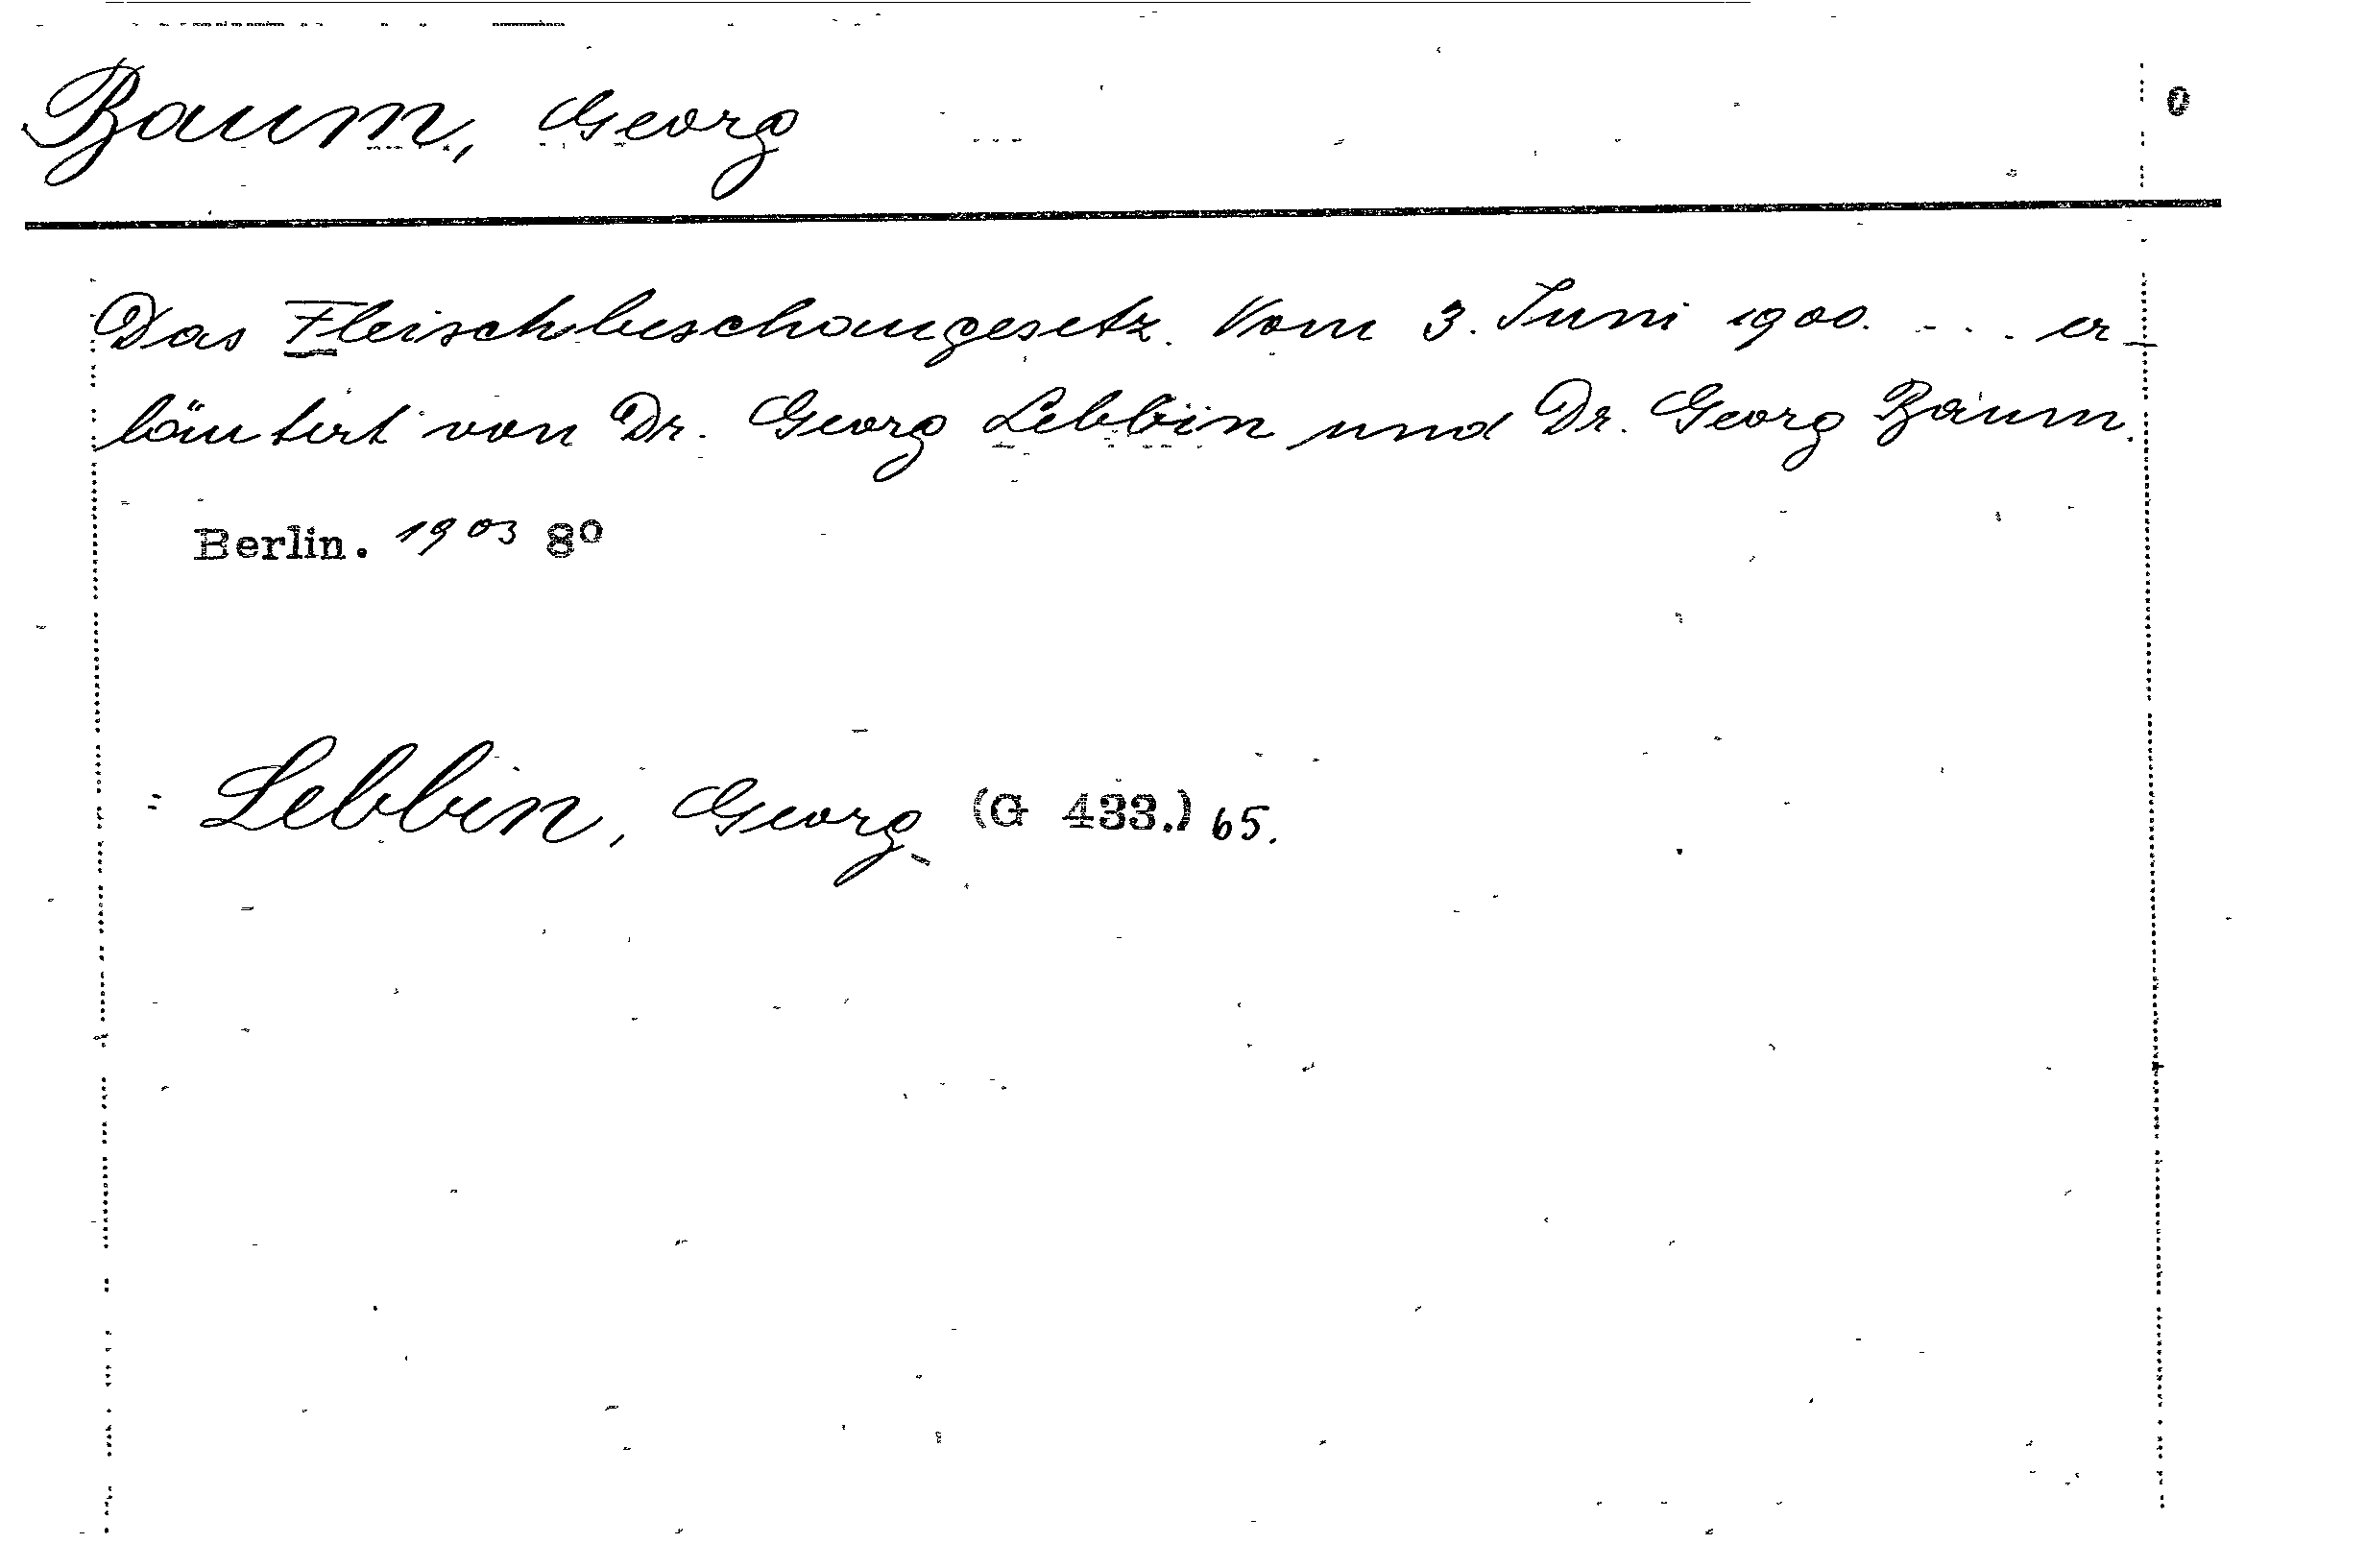 Baum, Georg
Das Fleischbeschaugesetz. Vom 3. Juni 1900. ... er-
läutert von Dr. Georg Lebbin und Dr. Georg Baum.
Berlin. 1903 8º
= Lebbin, Georg (G 433.) 65.